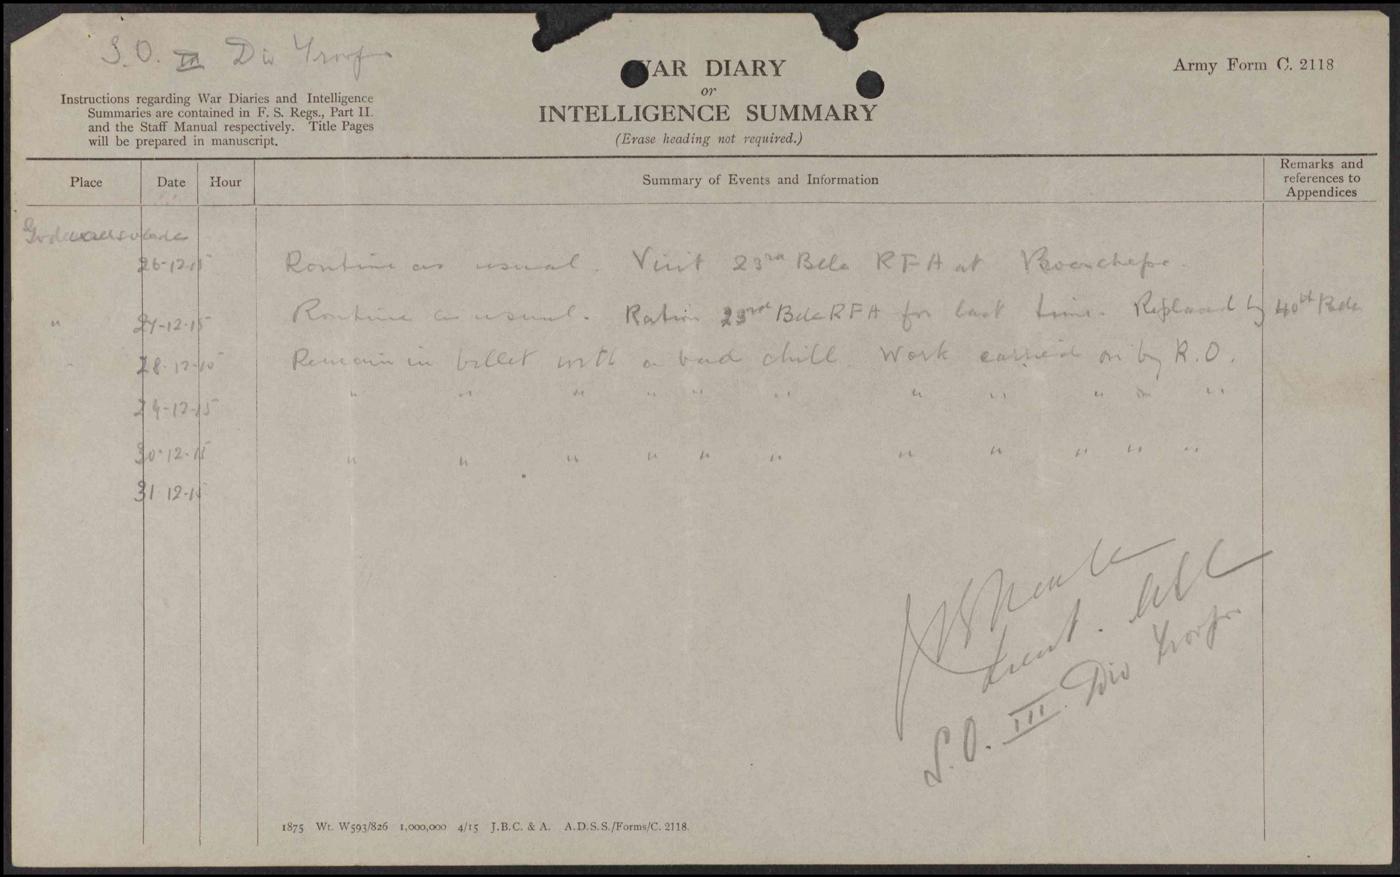 S.O. III Div Troops
WAR DIARY
or
INTELLIGENCE SUMMARY
(Erase heading not required.)
Army Form C. 2118
Instructions regarding War Diaries and Intelligence
Summaries are contained in F. S. Regs., Part II.
and the Staff Manual respectively. Title Pages
will be prepared in manuscript.
Place
Date
Hour
Summary of Events and Information
Remarks and
references to
Appendices
Godewaersvelde
26-12-15 Routine as usual. Visit 23rd Bde RFA at Boeschepe.
" 27-12-15 Routine as usual. Ration 23rd Bde RFA for last time. Replaced by 40th Bde
" 28-12-15 Remain in billet with a bad chill. Work carried on by R.O.
29-12-15 " " " " " " " " " " "
30-12-15 " " " " " " " " " " "
31-12-15
Lieut. ASC
S.O. III. Div Troops
1875 Wt. W593/826 1,000,000 4/15 J.B.C. & A. A.D.S.S./Forms/C. 2118.